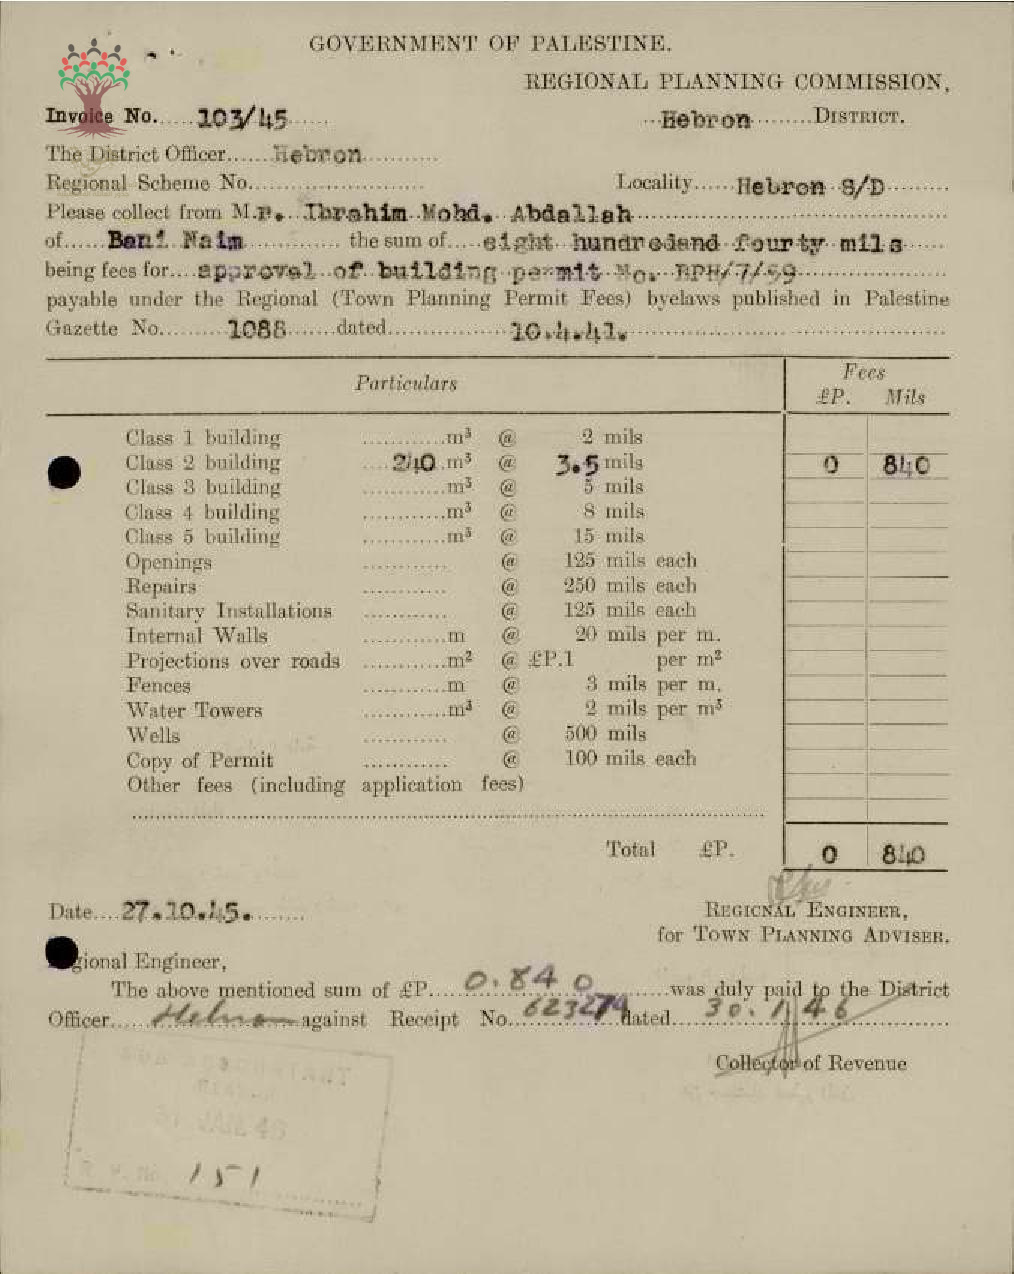 GOVERNMENT OF PALESTINE.
REGIONAL PLANNING COMMISSION,
Invoice No......103/45......
...Hebron.........DISTRICT.
The District Officer......Hebron...........
Regional Scheme No.........................
Locality......Hebron S/D.........
Please collect from Mr. Ibrahim Mohd. Abdallah
of......Bani Naim.............. the sum of.....eight hundredand fourty mils
being fees for....approval of building permit No. BPH/7/59
payable under the Regional (Town Planning Permit Fees) byelaws published in Palestine
Gazette No.........1088.......dated.................10.4.41.
Particulars Fees
£P. Mils
Class 1 building ............m³ @ 2 mils
Class 2 building ....240.m³ @ 3.5 mils 0 840
Class 3 building ............m³ @ 5 mils
Class 4 building ............m³ @ 8 mils
Class 5 building ............m³ @ 15 mils
Openings ............ @ 125 mils each
Repairs ............ @ 250 mils each
Sanitary Installations ............ @ 125 mils each
Internal Walls ............m @ 20 mils per m.
Projections over roads ............m² @ £P.1 per m²
Fences ............m @ 3 mils per m.
Water Towers ............m³ @ 2 mils per m³
Wells ............ @ 500 mils
Copy of Permit ............ @ 100 mils each
Other fees (including application fees)
Total £P. 0 840
Date....27.10.45.........
REGIONAL ENGINEER,
for TOWN PLANNING ADVISER.
gional Engineer,
The above mentioned sum of £P....0.840.........was duly paid to the District
Officer.....Hebron against Receipt No...623279 dated....30.1.46
Collector of Revenue
JAN 46
151